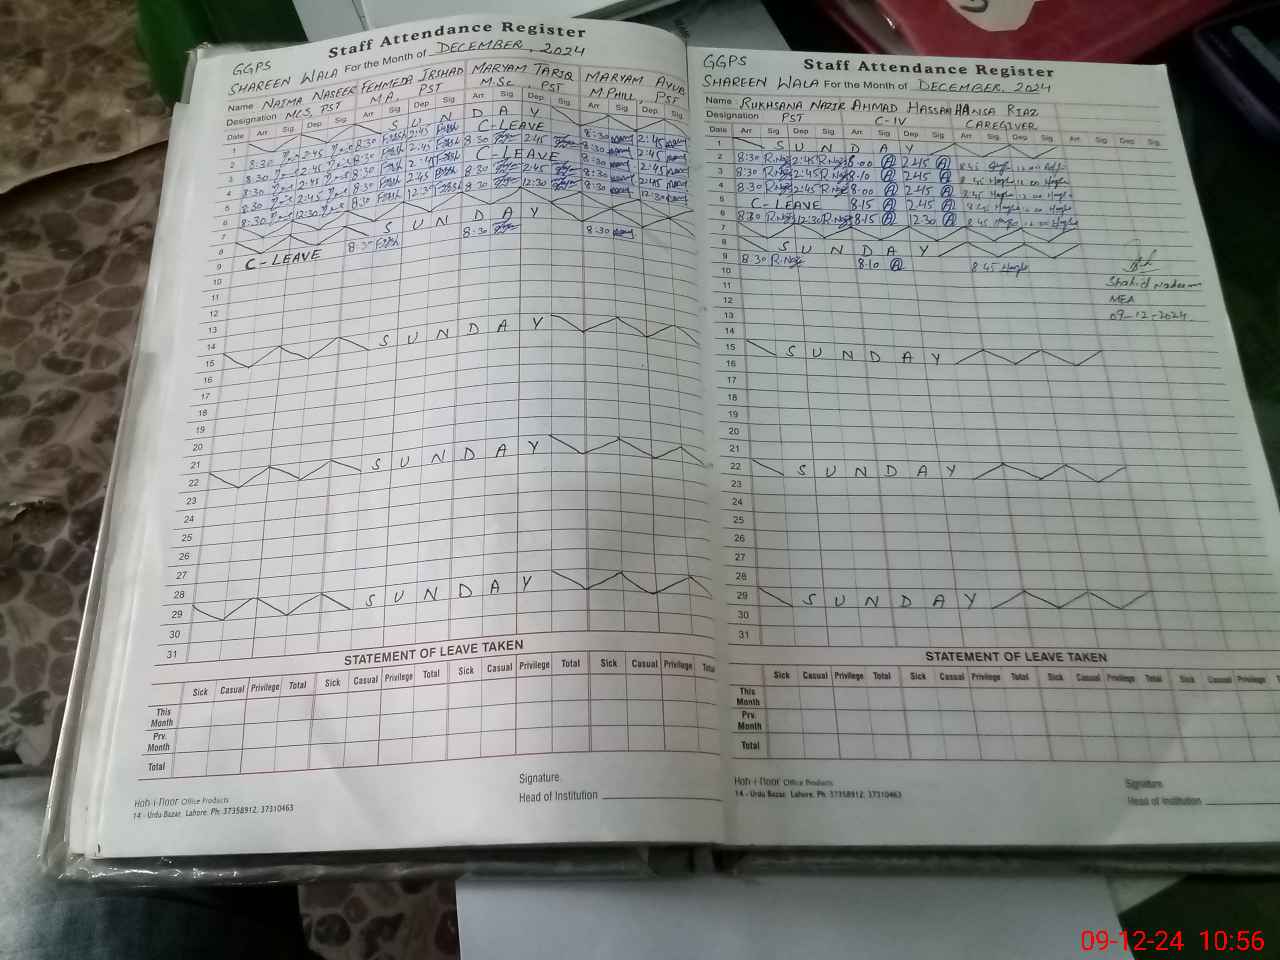 Staff Attendance Register
GGPS
SHAREEN WALA For the Month of DECEMBER, 2024
Name NAIMA NASEER FEHMEDA IRSHAD MARYAM TARIQ MARYAM AYUB
Designation MCS, PST M.A, PST M.Sc, PST M.PHILL, PST
Date Arr Sig Dep Sig Arr Sig Dep Sig Arr Sig Dep Sig Arr Sig Dep Sig
1 S U N D A Y
2 8:30 2:45 8:30 2:45 C-LEAVE 8:30 2:45
3 8:30 2:45 8:30 2:45 8:30 2:45 8:30 2:45
4 8:30 2:45 8:30 2:45 C-LEAVE 8:30 2:45
5 8:30 2:45 8:30 2:45 8:30 2:45 8:30 2:45
6 8:30 12:30 8:30 12:30 8:30 12:30 8:30 12:30
7
8 S U N D A Y
9 C-LEAVE 8:30 8:30 8:30
10
11
12
13
14
15 S U N D A Y
16
17
18
19
20
21
22 S U N D A Y
23
24
25
26
27
28
29 S U N D A Y
30
31
STATEMENT OF LEAVE TAKEN
Sick Casual Privilege Total Sick Casual Privilege Total Sick Casual Privilege Total Sick Casual Privilege Total
This Month
Prv. Month
Total
Signature.
Head of Institution
Koh-i-Noor Office Products
14 - Urdu Bazar, Lahore. Ph: 37358912, 37310463
GGPS Staff Attendance Register
SHAREEN WALA For the Month of DECEMBER, 2024
Name RUKHSANA NAZIR AHMAD HASSAN HANSA RIAZ
Designation PST C-IV CAREGIVER
Date Arr Sig Dep Sig Arr Sig Dep Sig Arr Sig Dep Sig Arr Sig Dep Sig
1 S U N D A Y
2 8:30 2:45 8:00 A 2:45 A 8:45
3 8:30 2:45 8:10 A 2:45 A 8:45
4 8:30 2:45 8:00 A 2:45 A 8:45
5 C-LEAVE 8:15 A 2:45 A 8:45
6 8:30 12:30 8:15 A 12:30 A 8:45
7
8 S U N D A Y
9 8:30 8:10 A 8:45
10
11
12
13
14
15 S U N D A Y
16
17
18
19
20
21
22 S U N D A Y
23
24
25
26
27
28
29 S U N D A Y
30
31
Shahid Nadeem
MEA
09-12-2024
STATEMENT OF LEAVE TAKEN
Sick Casual Privilege Total Sick Casual Privilege Total Sick Casual Privilege Total Sick Casual Privilege
This Month
Prv. Month
Total
Signature
Head of Institution
Koh-i-Noor Office Products
14 - Urdu Bazar, Lahore. Ph: 37358912, 37310463
09-12-24 10:56